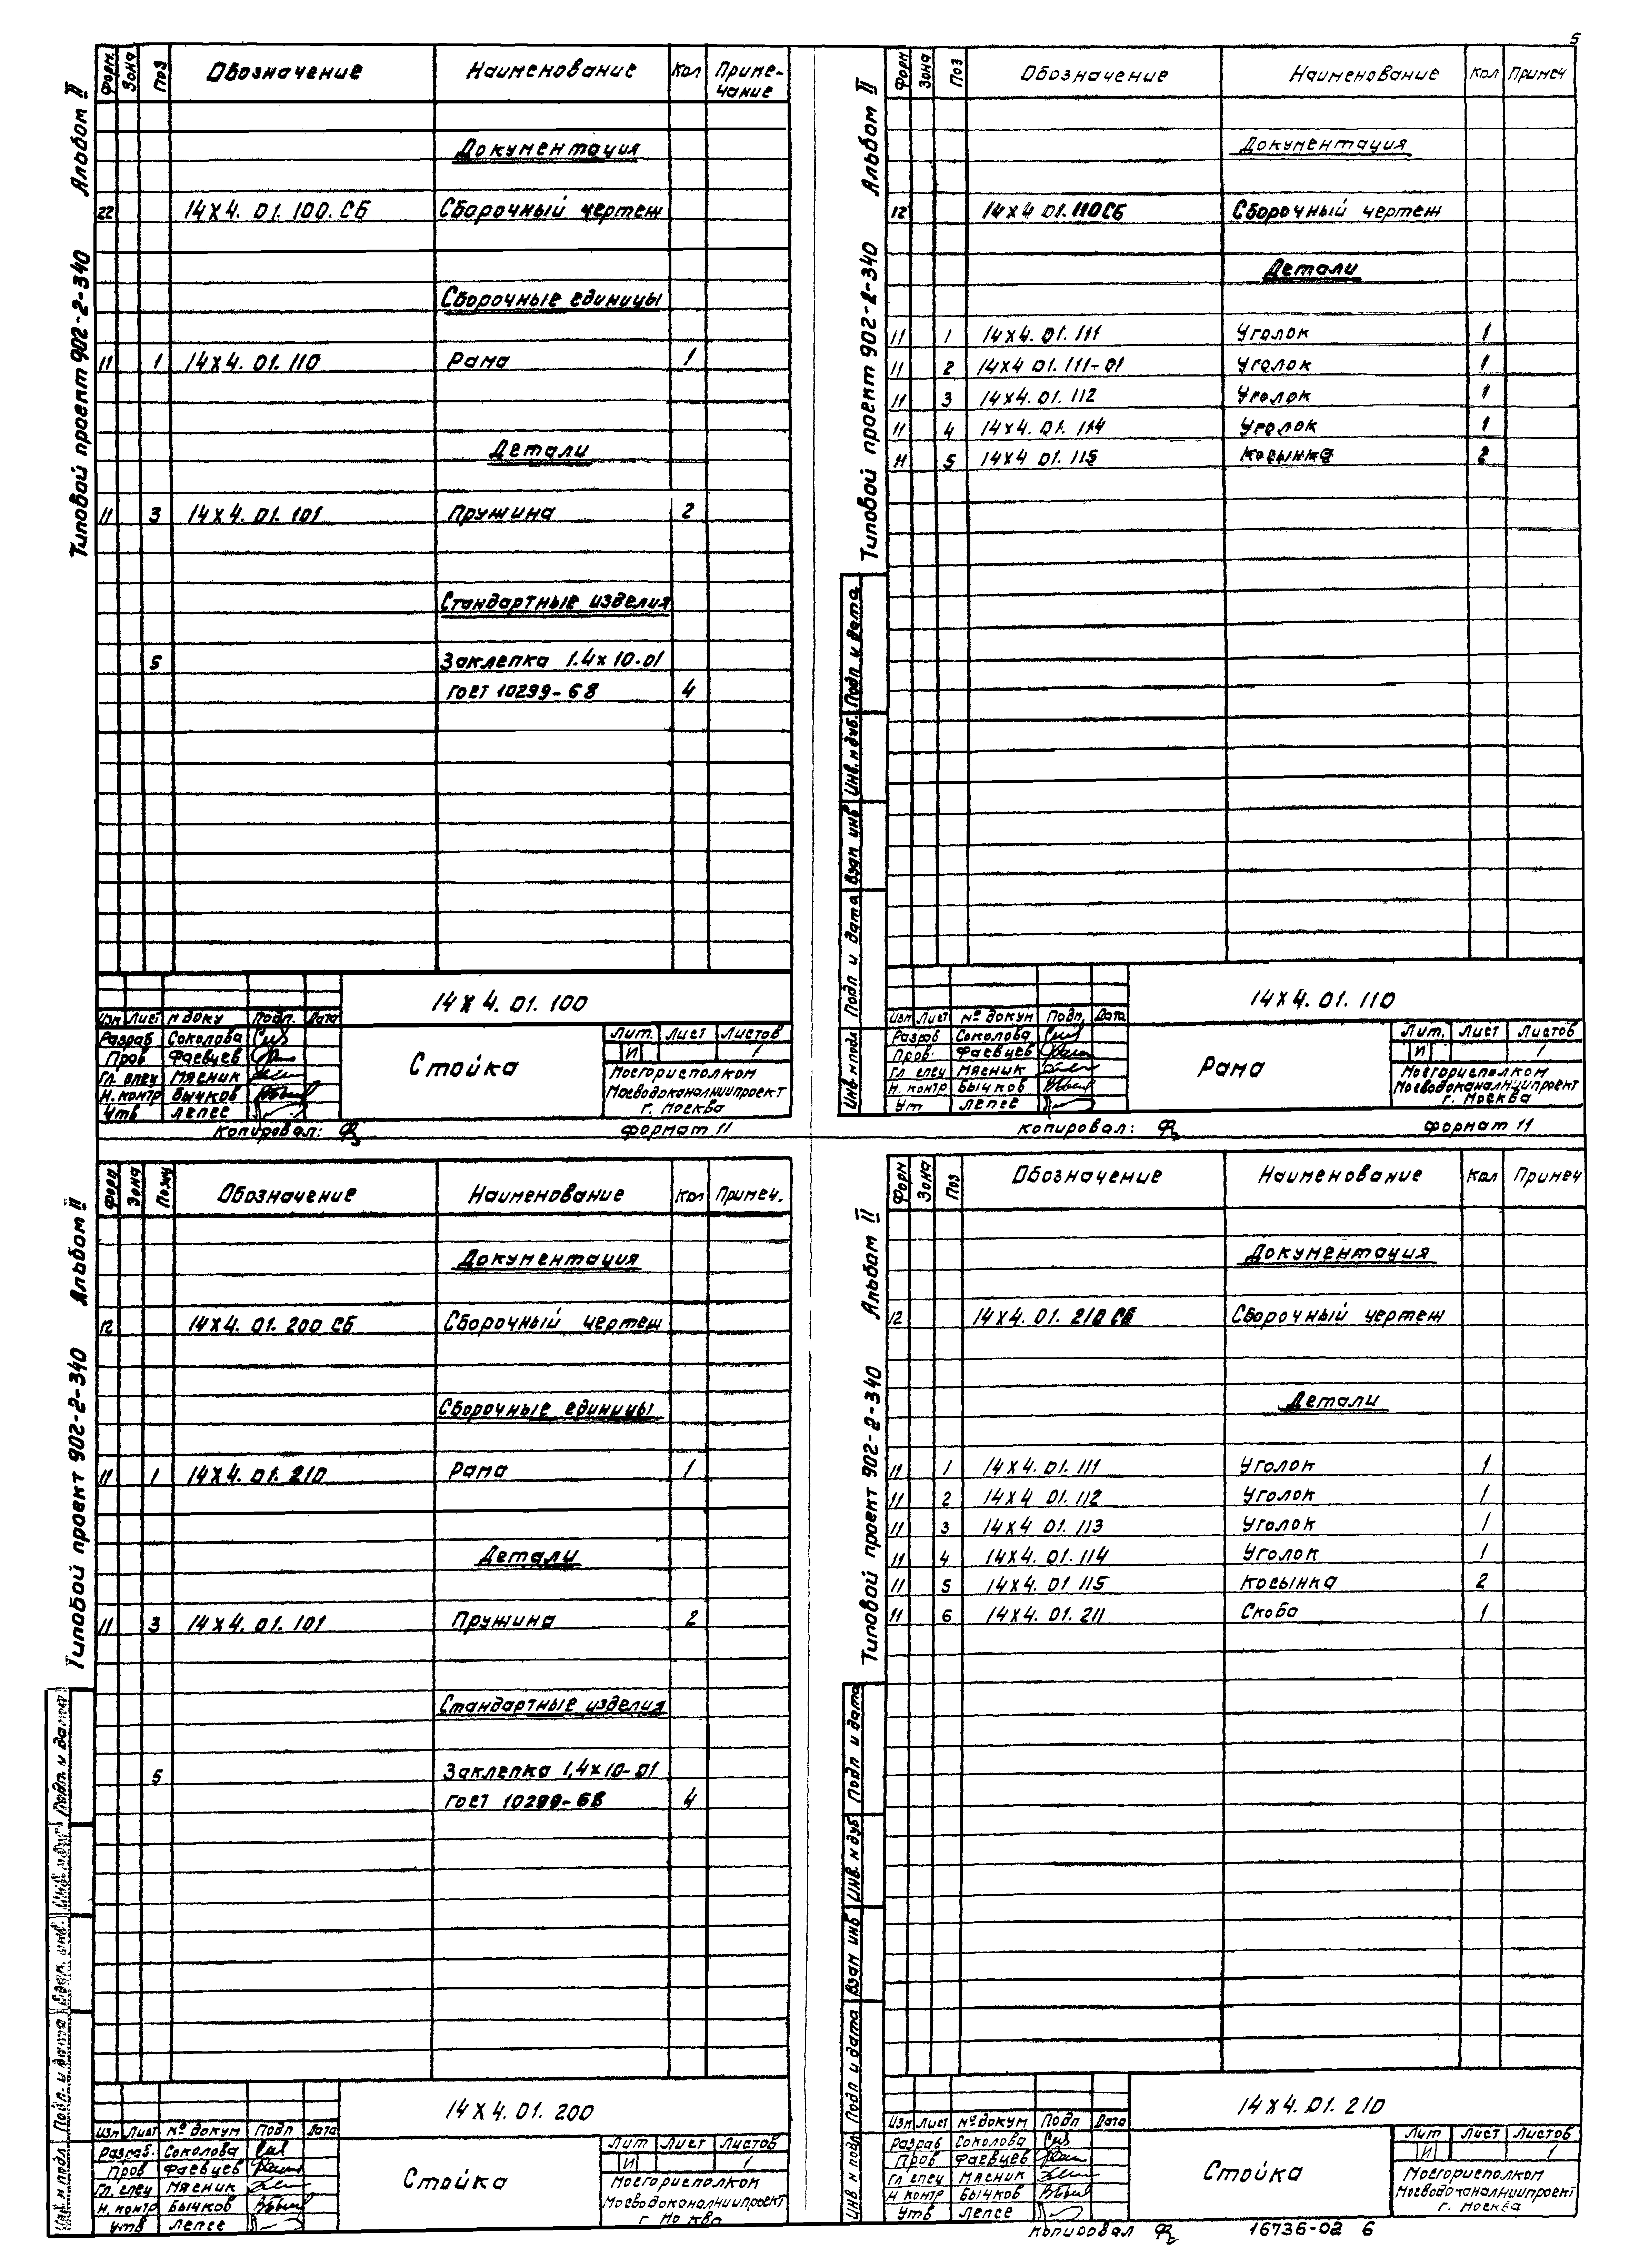 5
Альбом II
Типовой проект 902-2-340
Форм. Зона Поз Обозначение Наименование Кол Приме-
чание
Документация
22 14Х4. 01. 100. СБ Сборочный чертеж
Сборочные единицы
11 1 14Х4. 01. 110 Рама 1
Детали
11 3 14Х4. 01. 101 Пружина 2
Стандартные изделия
5 Заклепка 1.4х10-01
ГОСТ 10299-68 4
14Х4. 01. 100
Изм Лист N доку Подп. Дата
Разраб Соколова
Пров Фаевцев
Гл. спец Мясник
Н. контр Бычков
Утв Лепее
Стойка
Лит. Лист Листов
И 1
Мосгорисполком
Мосводоканалниипроект
г. Москва
Копировал:
Формат 11
Альбом II
Типовой проект 902-2-340
Форм Зона Поз Обозначение Наименование Кол Примеч
Документация
12 14Х4 01.110СБ Сборочный чертеж
Детали
11 1 14Х4. 01. 111 Уголок 1
11 2 14Х4 01. 111-01 Уголок 1
11 3 14Х4. 01. 112 Уголок 1
11 4 14Х4. 01. 114 Уголок 1
11 5 14Х4 01. 115 Косынка 2
Инв N подл Подп и дата Взам инв Инв. N дуб. Подп и дата
14Х4. 01. 110
Изм Лист № докум Подп. Дата
Разраб Соколова
Пров. Фаевцев
Гл спец Мясник
Н. контр Бычков
Ут Лепее
Рама
Лит. Лист Листов
И 1
Мосгорисполком
Мосводоканалниипроект
г. Москва
Копировал:
Формат 11
Альбом II
Типовой проект 902-2-340
Форм Зона Позиц Обозначение Наименование Кол Примеч.
Документация
12 14Х4. 01. 200 СБ Сборочный чертеж
Сборочные единицы
11 1 14Х4. 01. 210 Рама 1
Детали
11 3 14Х4. 01. 101 Пружина 2
Стандартные изделия
5 Заклепка 1,4х10-01
ГОСТ 10299-68 4
Инв. N подл Подп. и дата Взам. инв. Подп. и дата
14Х4. 01. 200
Изм Лист № докум Подп Дата
Разраб. Соколова
Пров Фаевцев
Гл. спец Мясник
Н. контр Бычков
Утв Лепее
Стойка
Лит Лист Листов
И 1
Мосгорисполком
Мосводоканалниипроект
г Москва
Альбом II
Типовой проект 902-2-340
Форм Зона Поз Обозначение Наименование Кол Примеч
Документация
12 14Х4. 01. 210 СБ Сборочный чертеж
Детали
11 1 14Х4. 01. 111 Уголок 1
11 2 14Х4 01. 112 Уголок 1
11 3 14Х4 01. 113 Уголок 1
11 4 14Х4. 01. 114 Уголок 1
11 5 14Х4. 01 115 Косынка 2
11 6 14Х4. 01. 211 Скоба 1
Инв N подл Подп и дата Взам инв Инв. N дуб Подп и дата
14Х4. 01. 210
Изм Лист № докум Подп Дата
Разраб Соколова
Пров Фаевцев
Гл спец Мясник
Н контр Бычков
Утв Лепее
Стойка
Лит Лист Листов
И 1
Мосгорисполком
Мосводоканалниипроект
г. Москва
Копировал
16736-02 6